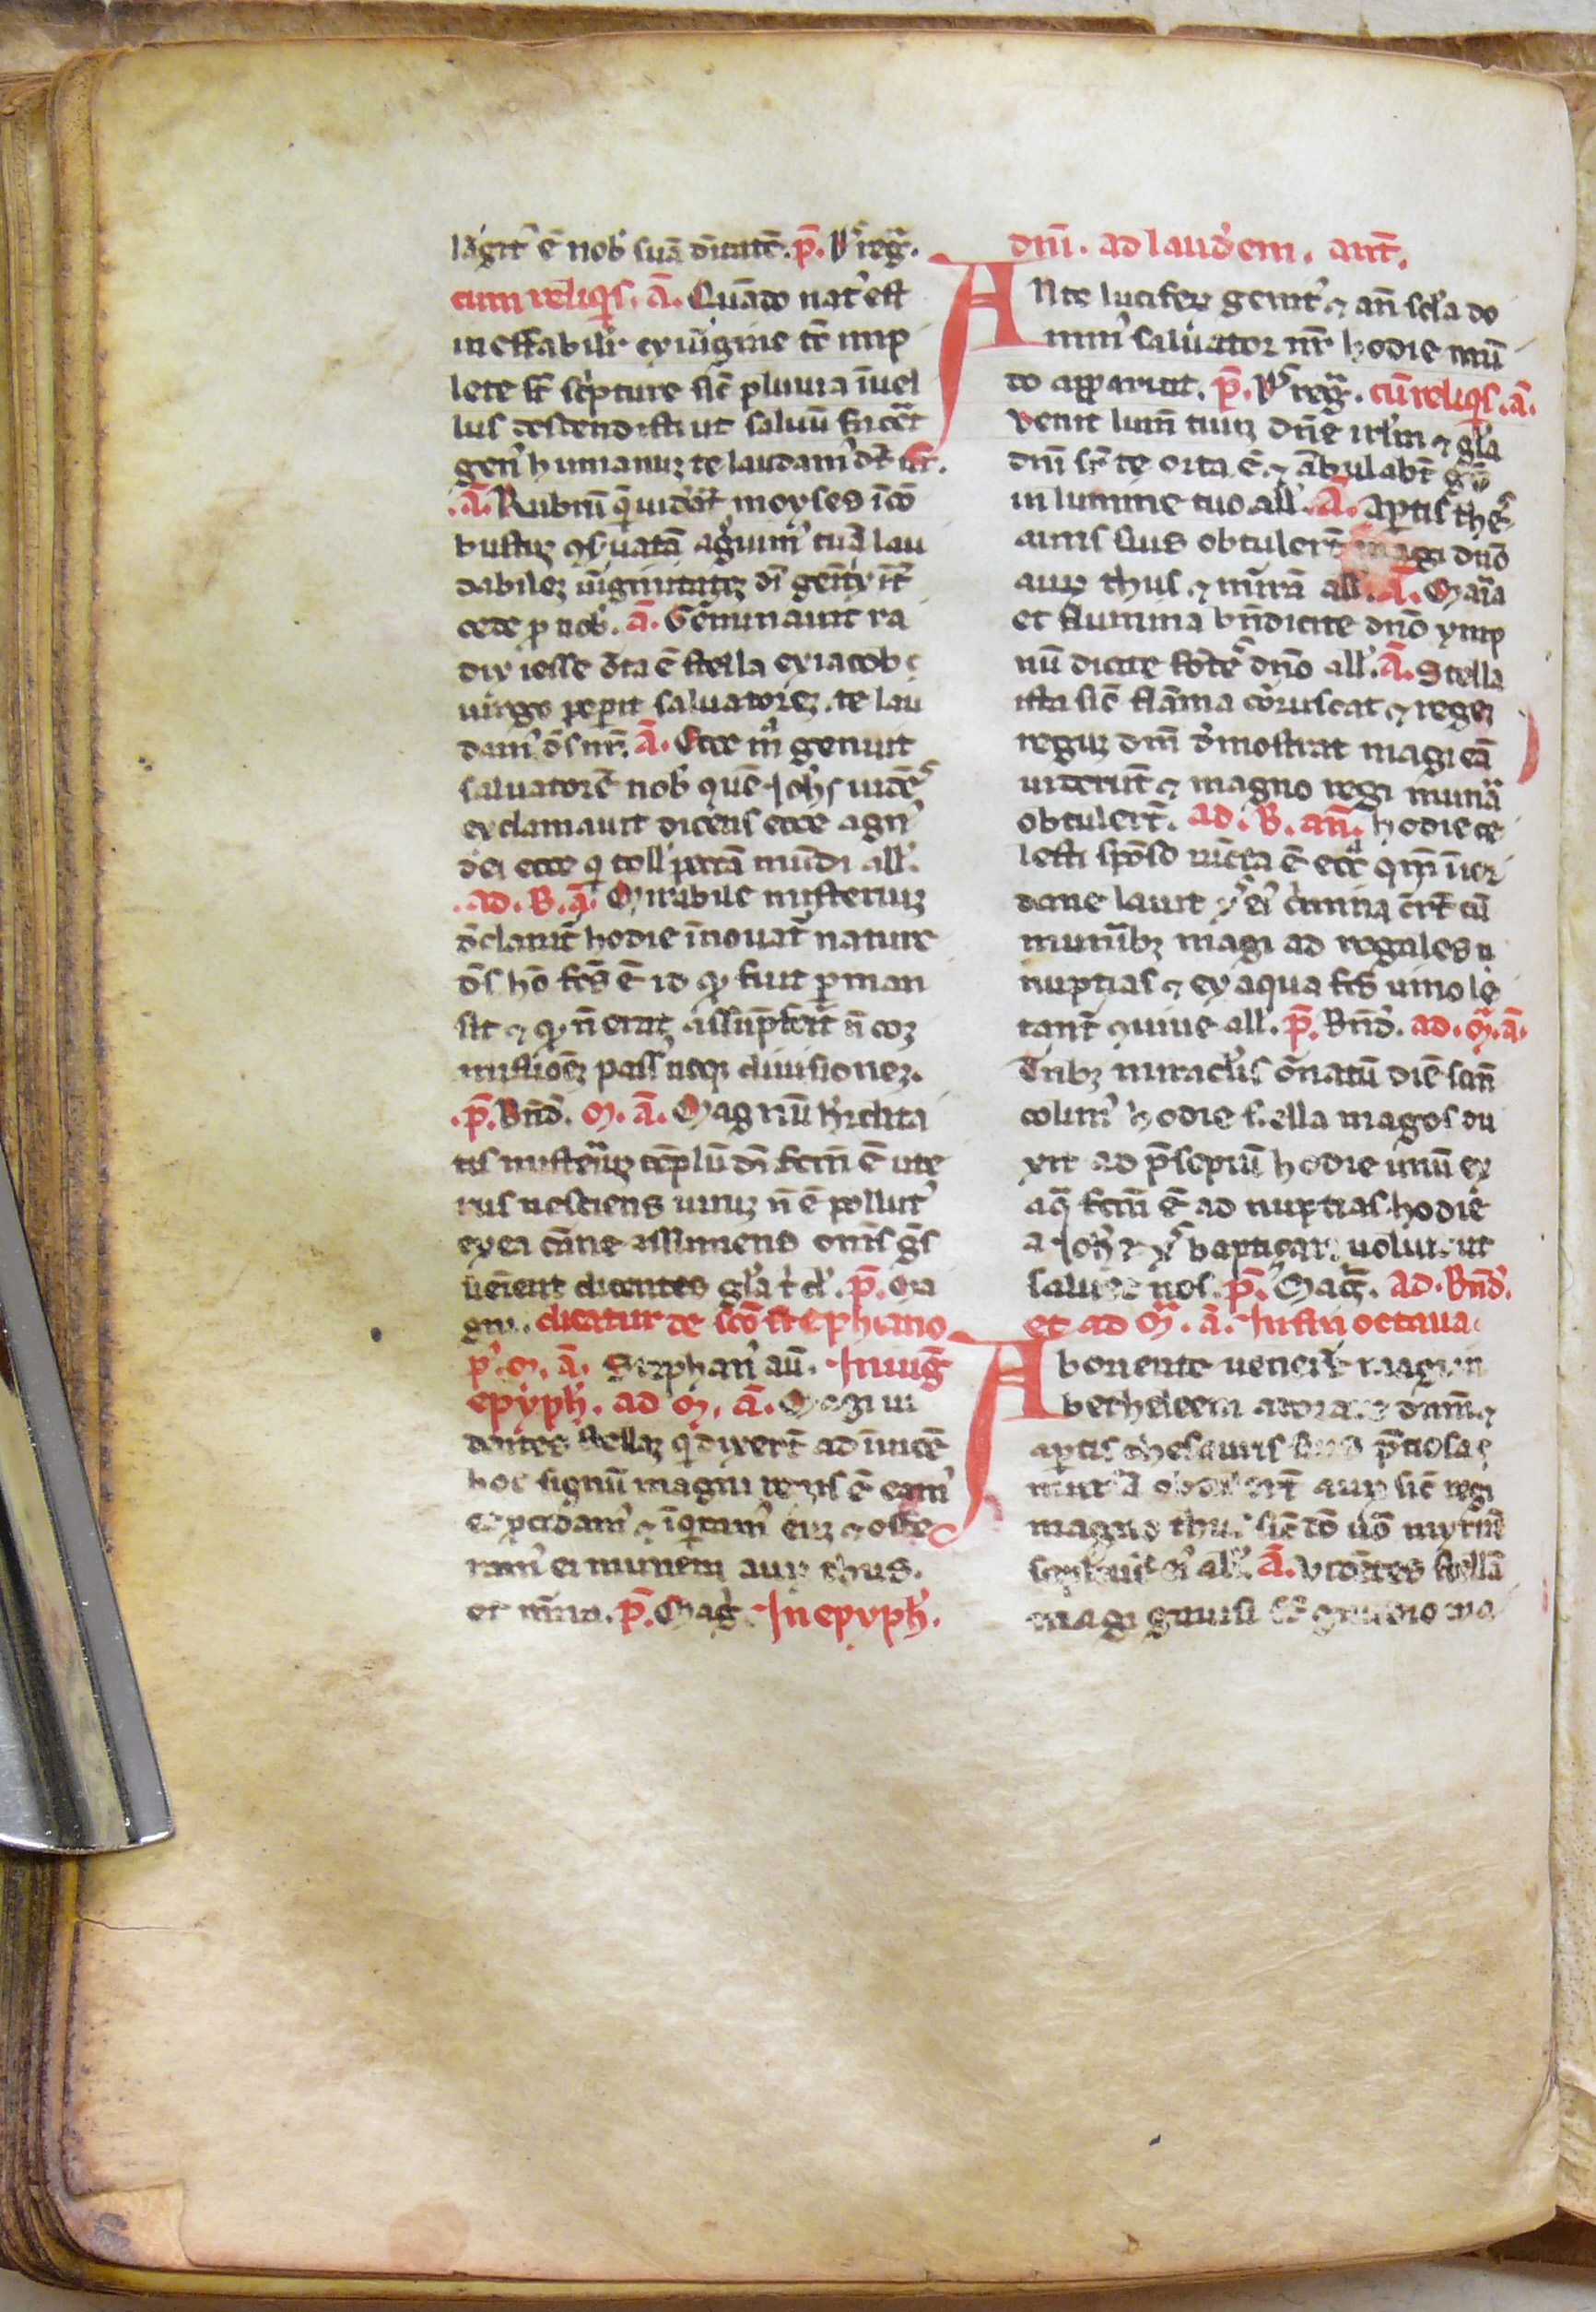 lāgit᷒ ē nob᷒ suā ditatē. p̄. Ds᷒ reg̃.
cum reliqis. ā. Quādo nat᷒ est
ineffabilir᷒ ex uigine tē imp
lete st̄ scpture sic̄ pluuia ī uel
lus descendisti ut saluū faceret
gen᷒ humanuz te laudam᷒ d᷒s nr̄.
.ā. Rubum quē uidat moyses īcō
bustuz ꝯseruatā agnuim᷒ tuā lau
dabilez uirginitatez di genit᷒x īt᷒
cede p nob᷒. ā. Germinauit ra
dix iesse orta ē stella ex iacob
uirgo peperit saluatorez. te lau
dam᷒ d᷒s nr̄. ā. Ecce m᷒a genuit
saluatorē nob᷒ quē Joh᷒s uidē᷒s
exclamauit dicens ecce agn᷒
dei ecce q toll᷒ peccā mūdi all᷒.
.ad. B. ā. Mirabile misteriuz
declarat᷒ hodie īnouāt᷒ nature
d᷒s hō fc̄s ē id qd fuit perman
sit ⁊ qd n̄ erat assūpsit n̄ coz
mistioez pass᷒ neqz diuisionez.
.p̄. Bn̄d᷒. m. ā. Magnū h᷒edita
tis misteriuz tēplū di fc̄m ē ute
rus nesciens uiruz n̄ ē pollut᷒
ex ea carne assumens om̄s gēs
uēient dicentes gl᷒a t᷒ d᷒. p̄. Ma
gni. dicatur de scō stephano
p᷒. m. ā. Stephan᷒ aū. In uig̃
epyph᷒. ad m. ā. Magi ui
dentes stellaz dixert̄ ad īuicē
hoc signū magni regis ē eam᷒
⁊ īqram᷒ euz ⁊ offe
ram᷒ ei munera auꝝ thus.
et mirra. p̄. Mag᷒. In epyph᷒.
dni. ad laudem. ant̄.
ANte lucifeꝝ genit᷒ ⁊ an̄ scl᷒a do
min᷒ saluator nr̄ hodie mū
do apparuit. p̄. Ds᷒ reg̃. cū reliqis. ā.
Venit lum̄ tuuz dn̄e irl᷒m ⁊ gl᷒a
dni sr̄ te orta ē ⁊ ābulabt̄ gē᷒s
in lumine tuo all᷒. ā. Aptis the᷒
auris suis obtulert̄ magi dno
auꝝ thus ⁊ mirrā all᷒. ā. Maria
et flumina bn̄dicite dnō ymp
nū dicite fōte᷒s dn̄o all᷒. ā. Stella
ista sic̄ flāma coruscat ⁊ regez
reguz dm̄ demōstrat magi eā
uiderūt ⁊ magno regi munā
obtulert̄. ad. B. an̄. hodie ce
lesti spōso iūcta ē ecc᷒a qm̄ ī ior
dane lauit x᷒ ei᷒ crimina cr̄t cū
munibz magi ad regales
nuptias ⁊ ex aqua fc̄o uino le
tant᷒ ꝯuiue all᷒. p̄. Bn̄d᷒. ad. m᷒. ā.
Tribz miraclis ornatū diē scm̄
colim᷒ hodie stella magos du
xit ad p̄sepiū hodie uinū ex
aq̄ fc̄m ē ad nuptias hodie
a Joh᷒e x᷒ baptizari uoluit ut
saluāet nos. p̄. Mag̃. ad. Bn̄d᷒.
et ad m᷒. ā. Infra octaua
Ab oriente uenert̄ magi in
bethleem adorare dnm̄ ⁊
aptis thesauris suis p̄tiosa
munera obtulert̄ auꝝ sic̄ regi
magno thus sic̄ dō uō mirrā
sepulture ei᷒ all᷒. ā. Vidētes stellā
magi gauisi st̄ gaudio ma